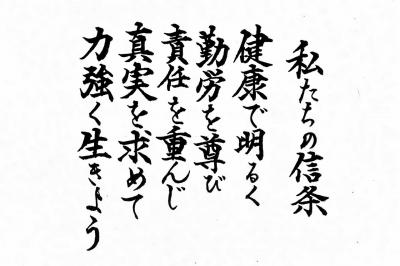 私たちの信条
健康で明るく
勤労を尊び
責任を重んじ
真実を求めて
力強く生きよう